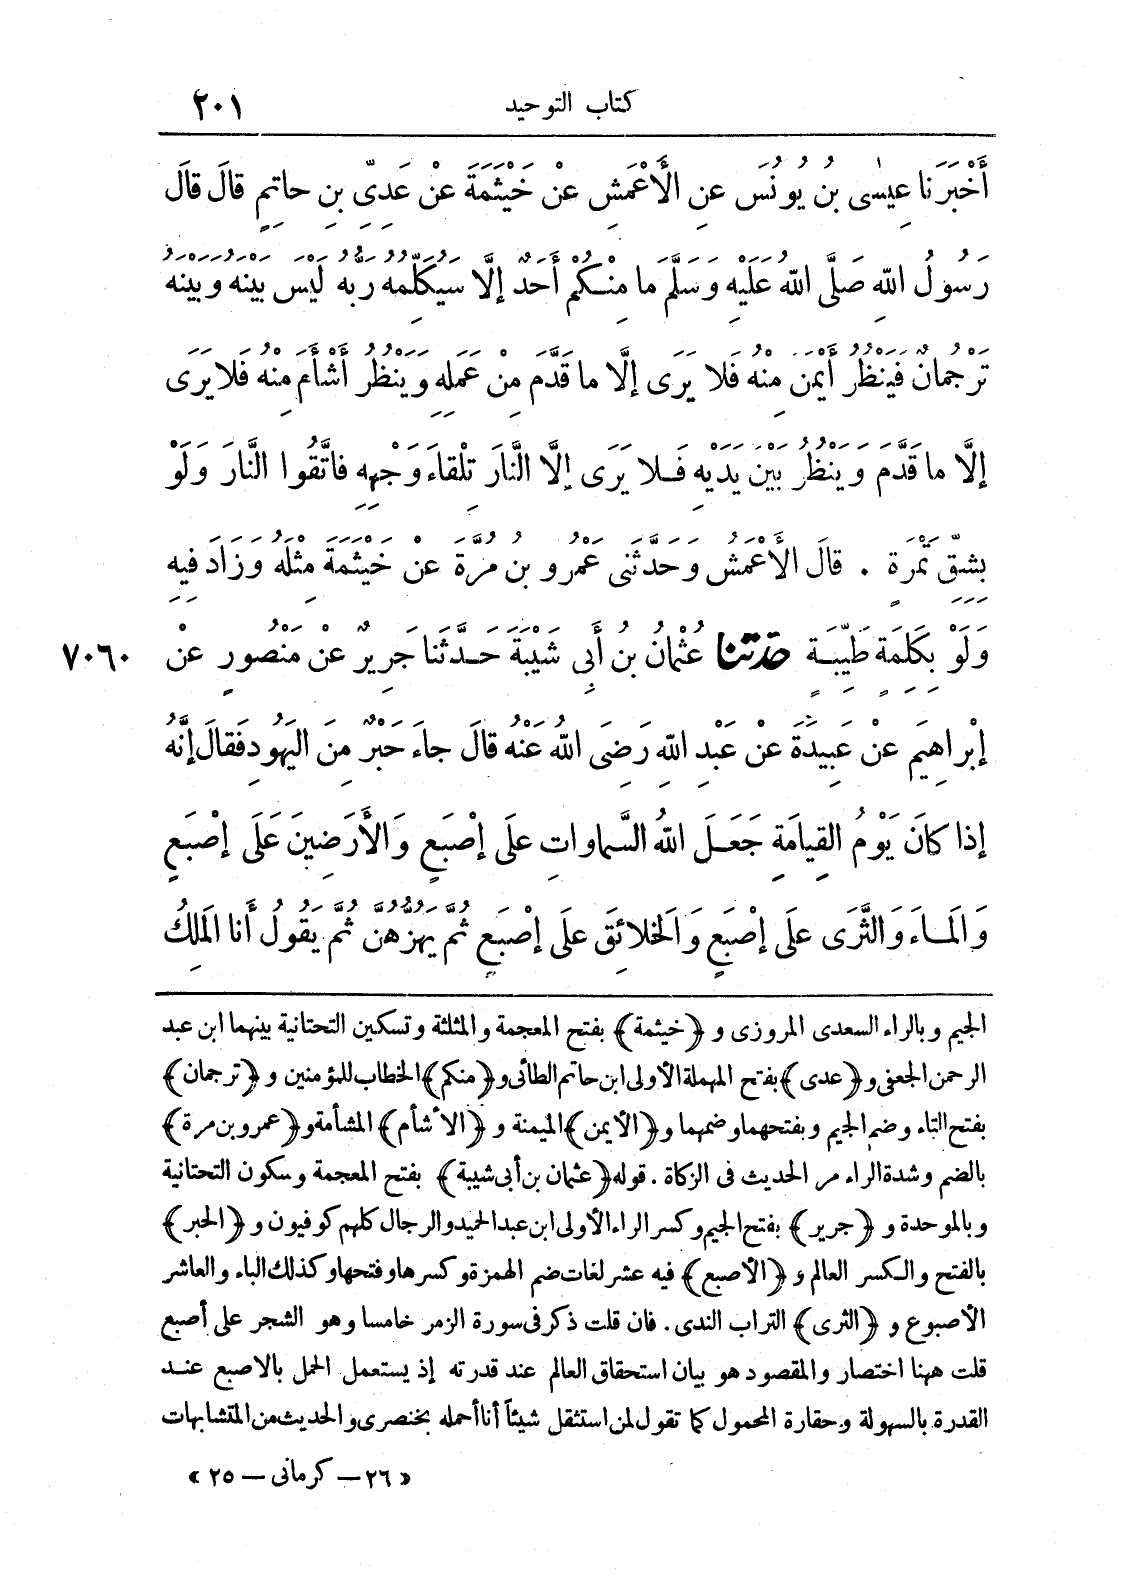 كتاب التوحيد ٢٠١
أَخْبَرَنَا عِيسَى بنُ يُونُسَ عنِ الأَعْمَشِ عنْ خَيْثَمَةَ عنْ عَدِيِّ بنِ حاتِمٍ قالَ قالَ
رَسُولُ اللهِ صَلَّى اللهُ عَلَيْهِ وَسَلَّمَ ما مِنْكُمْ أَحَدٌ إلَّا سَيُكَلِّمُهُ رَبُّهُ لَيْسَ بَيْنَهُ وَبَيْنَهُ
تَرْجُمانٌ فَيَنْظُرُ أَيْمَنَ مِنْهُ فَلا يَرَى إلَّا ما قَدَّمَ مِنْ عَمَلِهِ وَيَنْظُرُ أَشْأَمَ مِنْهُ فَلا يَرَى
إلَّا ما قَدَّمَ وَيَنْظُرُ بَيْنَ يَدَيْهِ فَلا يَرَى إلَّا النَّارَ تِلْقاءَ وَجْهِهِ فاتَّقُوا النَّارَ وَلَوْ
بِشِقِّ تَمْرَةٍ . قالَ الأَعْمَشُ وَحَدَّثَنِى عَمْرُو بنُ مُرَّةَ عنْ خَيْثَمَةَ مِثْلَهُ وَزَادَ فِيهِ
وَلَوْ بِكَلِمَةٍ طَيِّبَةٍ حَدَّثَنَا عُثْمانُ بنُ أَبِى شَيْبَةَ حَدَّثَنا جَرِيرٌ عنْ مَنْصُورٍ عنْ ٧٠٦٠
إبْراهِيمَ عنْ عَبِيدَةَ عنْ عَبْدِ اللهِ رَضِىَ اللهُ عَنْهُ قالَ جاءَ حَبْرٌ مِنَ اليَهُودِ فَقالَ إنَّهُ
إذا كانَ يَوْمُ القِيامَةِ جَعَلَ اللهُ السَّماواتِ علَى إصْبَعٍ وَالأَرَضِينَ عَلَى إصْبَعٍ
وَالمَاءَ وَالثَّرَى علَى إصْبَعٍ وَالخَلائِقَ علَى إصْبَعٍ ثُمَّ يَهُزُّهُنَّ ثُمَّ يَقُولُ أَنا المَلِكُ
الجيم وبالراء السعدى المروزى و ﴿خيثمة﴾ بفتح المعجمة والمثلثة وتسكين التحتانية بينهما ابن عبد
الرحمن الجعفى و ﴿عدى﴾ بفتح المهملة الأولى ابن حاتم الطائى و ﴿منكم﴾ الخطاب للمؤمنين و ﴿ترجمان﴾
بفتح التاء وضم الجيم وبفتحهما وضمهما و ﴿الأيمن﴾ الميمنة و ﴿الأشأم﴾ المشأمة و ﴿عمرو بن مرة﴾
بالضم وشدة الراء مر الحديث فى الزكاة . قوله ﴿عثمان بن أبى شيبة﴾ بفتح المعجمة وسكون التحتانية
وبالموحدة و ﴿جرير﴾ بفتح الجيم وكسر الراء الأولى ابن عبد الحميد والرجال كلهم كوفيون و ﴿الحبر﴾
بالفتح والكسر العالم و ﴿الأصبع﴾ فيه عشر لغات ضم الهمزة وكسرها وفتحها وكذلك الباء والعاشر
الأصبوع و ﴿الثرى﴾ التراب الندى . فان قلت ذكر فى سورة الزمر خامسا وهو الشجر على أصبع
قلت ههنا اختصار والمقصود هو بيان استحقاق العالم عند قدرته إذ يستعمل الحمل بالاصبع عند
القدرة بالسهولة وحقارة المحمول كما تقول لمن استثقل شيئاً أنا أحمله بخنصرى والحديث من المتشابهات
« ٢٦ – كرمانى – ٢٥ »